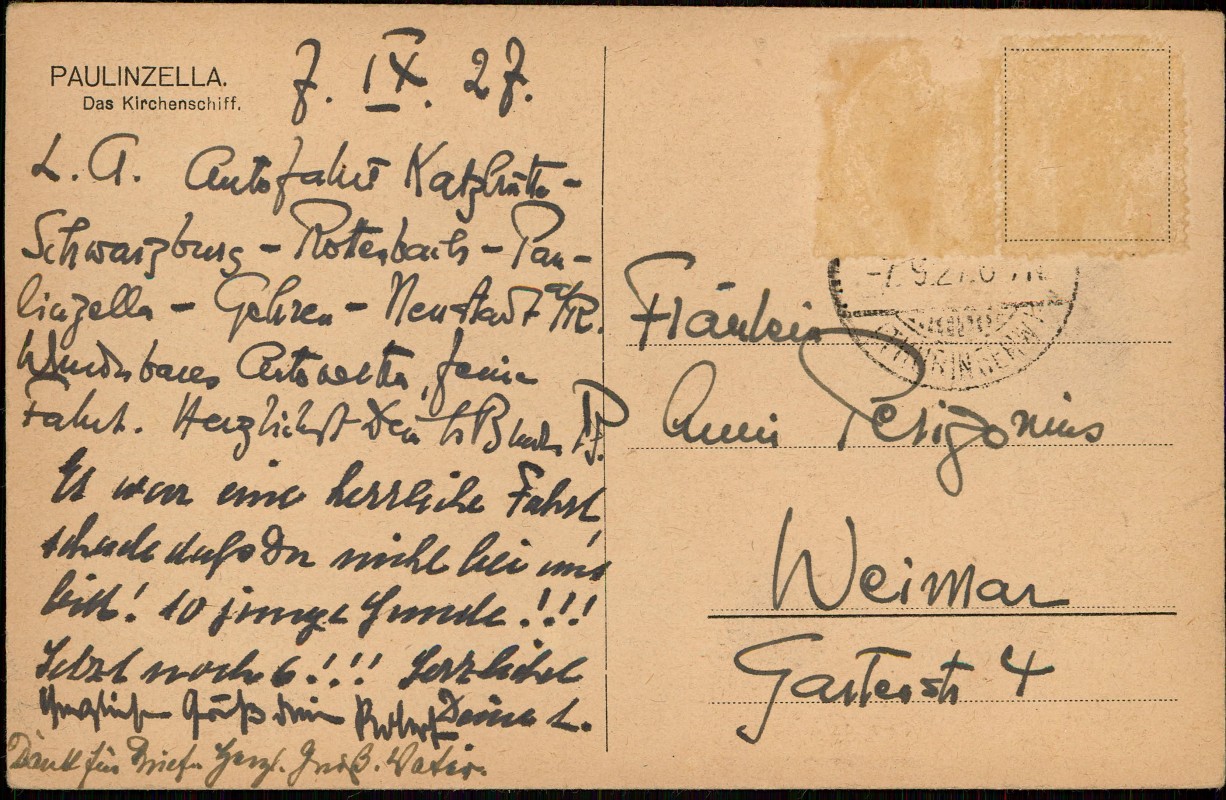 PAULINZELLA.
Das Kirchenschiff.
7. IX. 27.
L. A. Autofahrt Katzhütte -
Schwarzburg - Rottenbach - Pau-
linzella - Gehren - Neustadt a/R.
Wunderbares Autowetter, feine
Fahrt. Herzlichst Dein
Es war eine herrliche Fahrt,
schade dass Du nicht bei uns
bist! 10 junge Hunde!!!
Jetzt noch 6!!! Herzlichst
Deine L.
Herzlichen Gruß Dein Robert
Dank für Brief. Herzl. Gruß. Vater.
-7.9.27.
Fräulein
Anni Perizonius
Weimar
Gartenstr 4